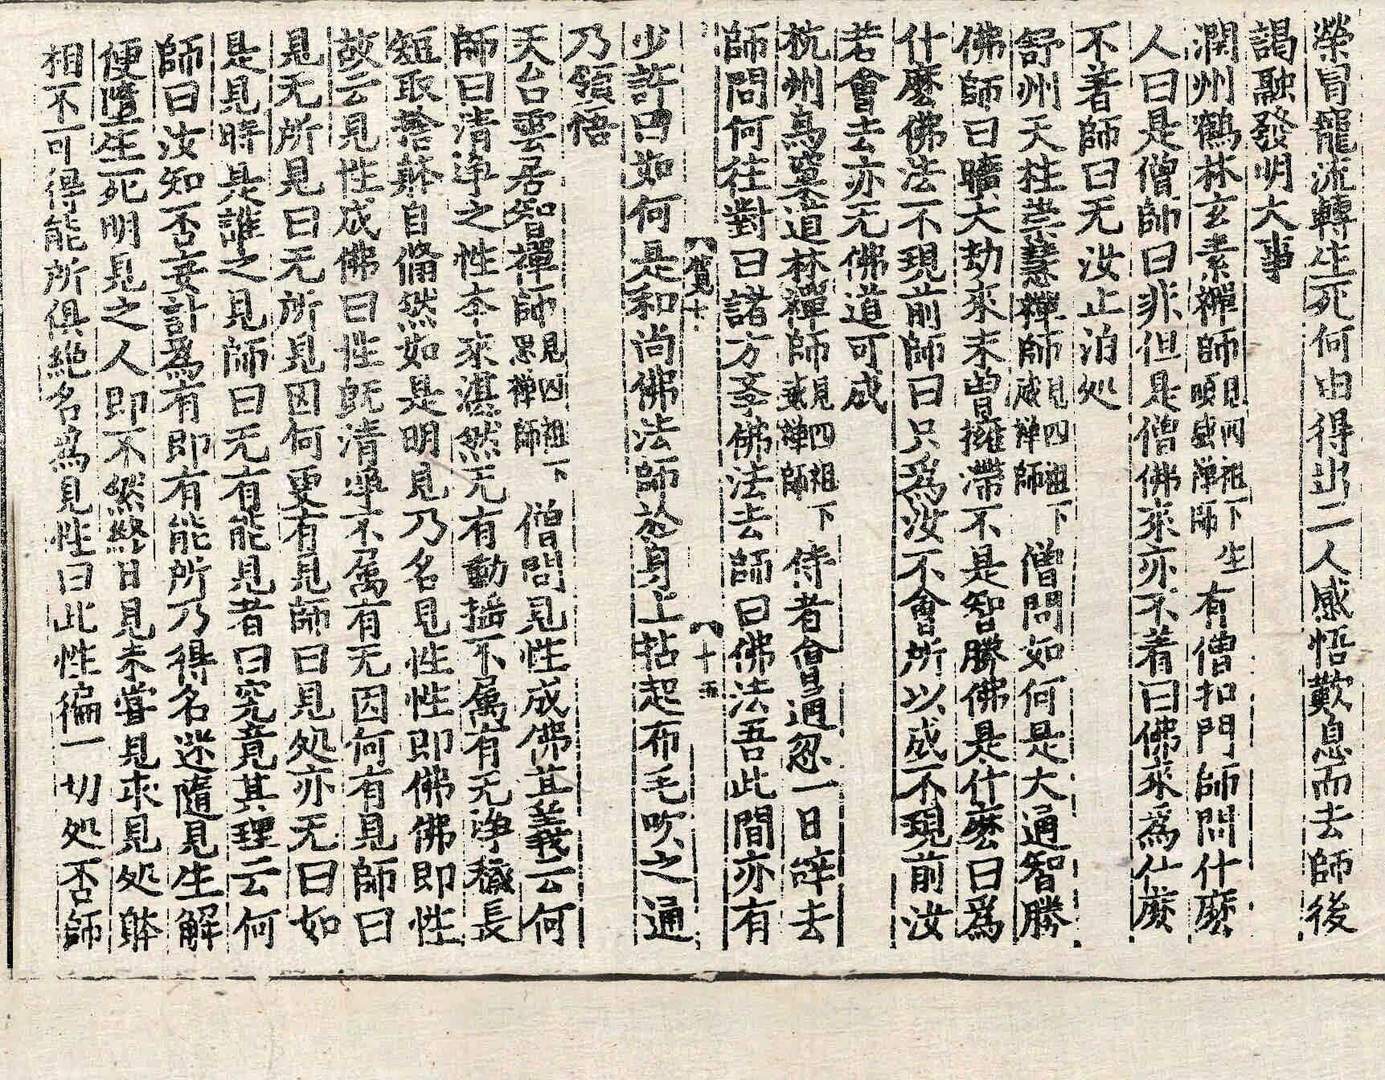 榮冒寵流轉生死何由得出二人感悟歎息而去師後
謁融發明大事
潤州鶴林玄素禪師見四祖下生順感禅師有僧扣門師問什麽
人曰是僧師曰非但是僧佛來亦不着曰佛來爲什麽
不著師曰无汝止泊処
舒州天柱崇慧禪師見四祖下威禅師僧問如何是大通智勝
佛師曰曠大劫來未曾擁滯不是智勝佛是什麽曰爲
什麽佛法不現前師曰只爲汝不會所以成不現前汝
若會去亦无佛道可成
杭州鳥窠道林禪師見四祖下禅師侍者會通忽一日辞去
師問何往對曰諸方學佛法去師曰佛法吾此間亦有
十
十
少許曰如何是和尚佛法師於身上拈起布毛吹之通
乃領悟
天台雲居智禪師見四祖下禅師僧問見性成佛其義云何
師曰清净之性本來湛然无有動揺不属有无净穢長
短取捨躰自翛然如是明見乃名見性性即佛佛即性
故云見性成佛曰性旣清净不属有无因何有見師曰
見无所見曰无所見因何更有見師曰見処亦无曰如
是見時是誰之見師曰无有能見者曰究竟其理云何
師曰汝知否妄計爲有即有能所乃得名迷隨見生解
便墮生死明見之人即不然終日見未嘗見求見処躰
相不可得能所俱絶名爲見性曰此性徧一切処否師